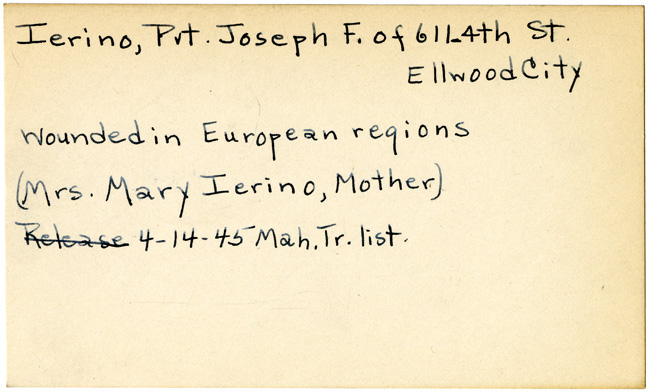 Ierino, Pvt. Joseph F. of 611-4th St.
Ellwood City
wounded in European regions
(Mrs. Mary Ierino, Mother)
Release 4-14-45 Mah. Tr. list.